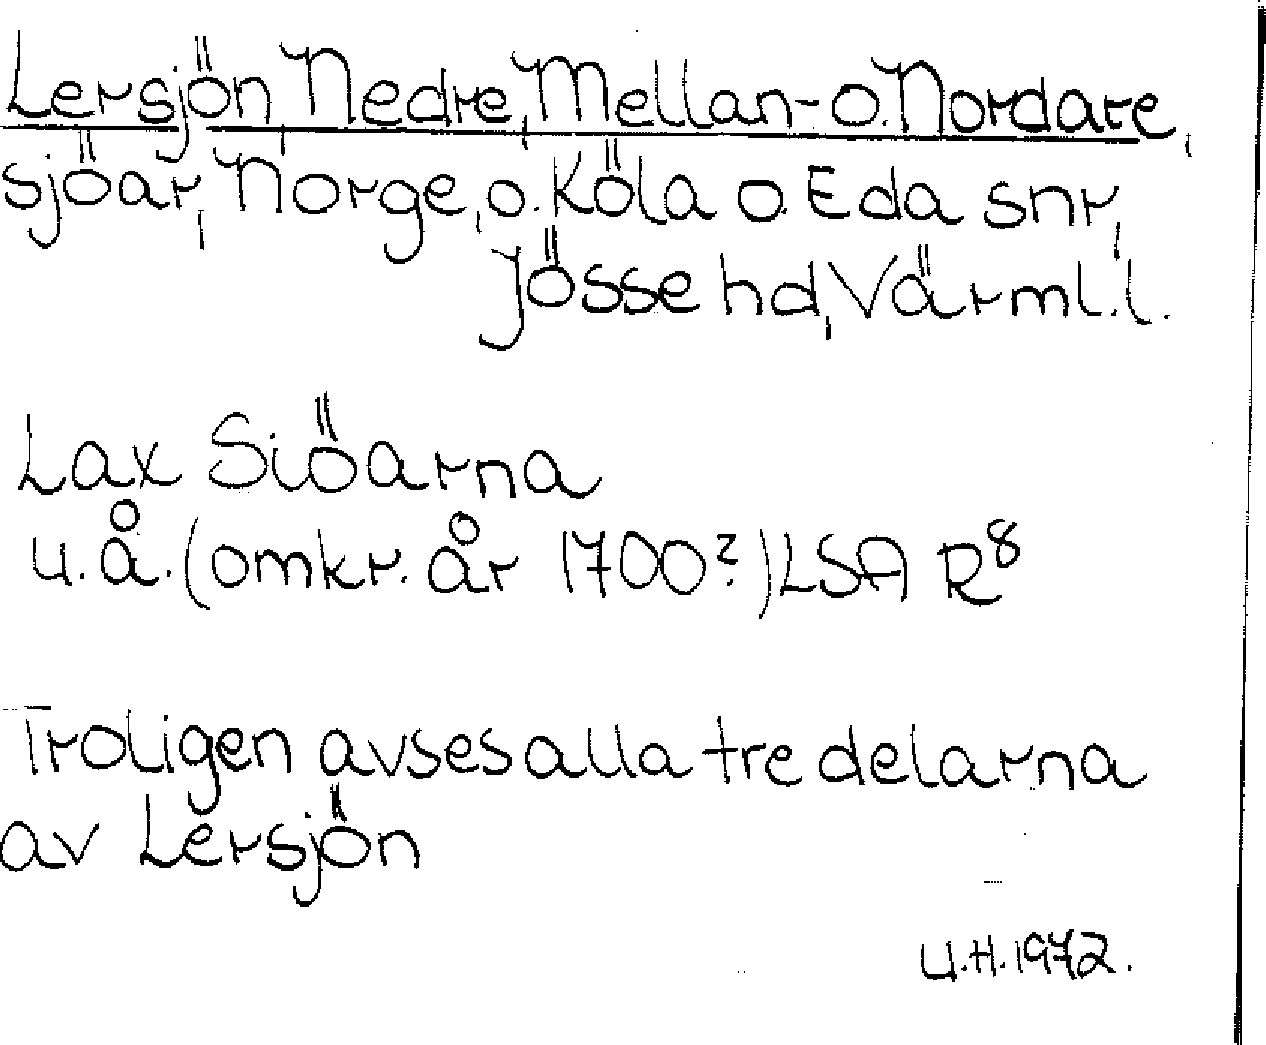 Lersjön, Nedre, Mellan- o. Nordare,
sjöar, Norge, o. Köla o. Eda snr,
Jösse hd, Värml. l.
Lax Siöarna
u. å. (omkr. år 1700?) LSA R⁸
Troligen avses alla tre delarna
av Lersjön
U.H. 1972.